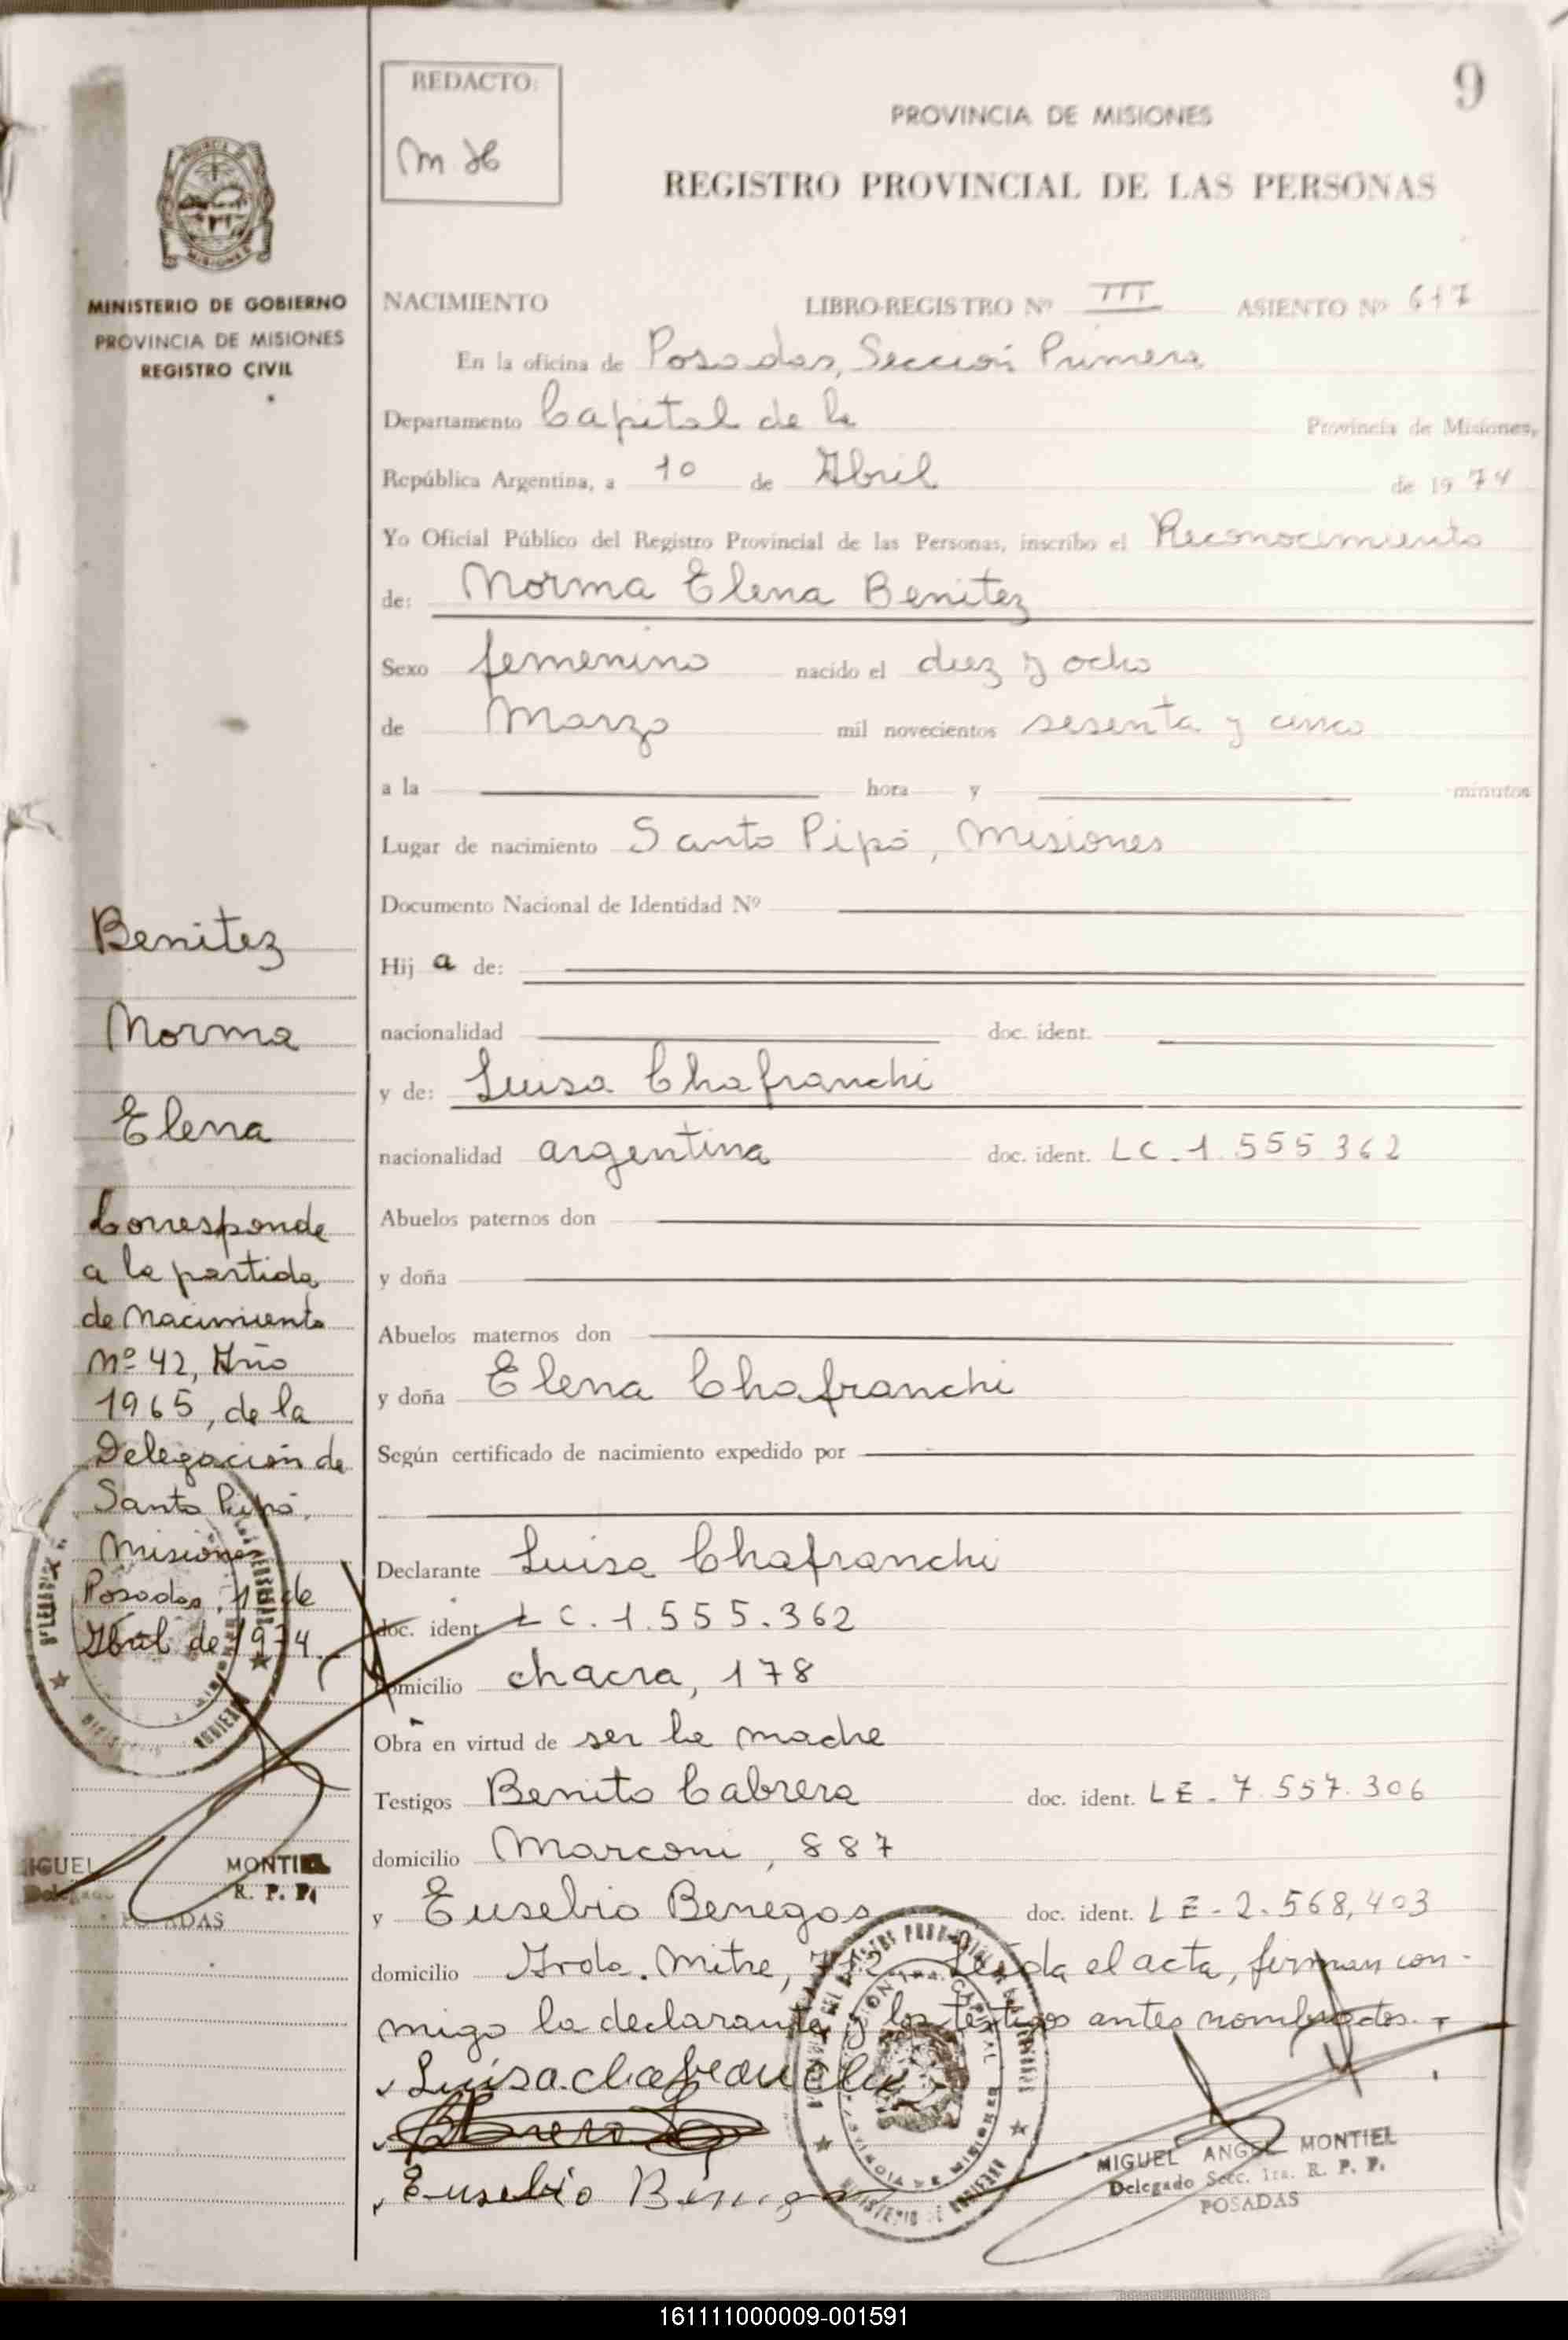 9
REDACTO:
M. H
PROVINCIA DE MISIONES
REGISTRO PROVINCIAL DE LAS PERSONAS
MINISTERIO DE GOBIERNO
PROVINCIA DE MISIONES
REGISTRO CIVIL
NACIMIENTO LIBRO-REGISTRO Nº III ASIENTO Nº 617
En la oficina de Posadas, Sección Primera
Departamento Capital de la Provincia de Misiones,
República Argentina, a 10 de Abril de 1974
Yo Oficial Público del Registro Provincial de las Personas, inscribo el Reconocimiento
de: Norma Elena Benitez
Sexo femenino nacido el diez y ocho
de Marzo mil novecientos sesenta y cinco
a la hora y minutos
Lugar de nacimiento Santo Pipó, Misiones
Documento Nacional de Identidad Nº
Hij a de:
nacionalidad doc. ident.
y de: Luisa Chafranchi
nacionalidad argentina doc. ident. LC. 1.555.362
Abuelos paternos don
y doña
Abuelos maternos don
y doña Elena Chafranchi
Según certificado de nacimiento expedido por
Declarante Luisa Chafranchi
doc. ident. LC. 1.555.362
domicilio chacra, 178
Obra en virtud de ser la madre
Testigos Benito Cabrera doc. ident. LE. 7.557.306
domicilio Marconi, 887
y Eusebio Benegas doc. ident. LE-2.568,403
domicilio Avda. Mitre, Leída el acta, firman con-
migo la declarante y los testigos antes nombrados.-
Luisa chafranchi
Eusebio Benegas
MIGUEL ANGEL MONTIEL
Delegado Secc. 1ra. R. P. P.
POSADAS
Benitez
Norma
Elena
Corresponde
a la partida
de Nacimiento
Nº 42, Año
1965, de la
Delegación de
Santo Pipó,
Misiones
Posadas, de
Abril de 1974.
MIGUEL MONTIEL
Delegado R. P. P.
POSADAS
161111000009-001591